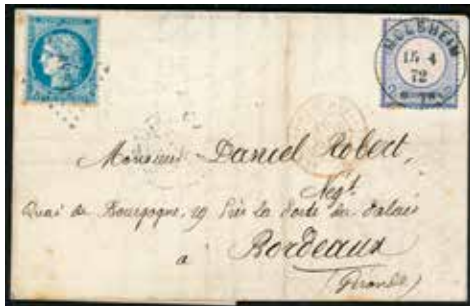 MOLSHEIM
15 4
72
Monsieur Daniel Robert,
Negt
Quai de Bourgogne, 19 Près la Porte du Palais
à Bordeaux
(Gironde)